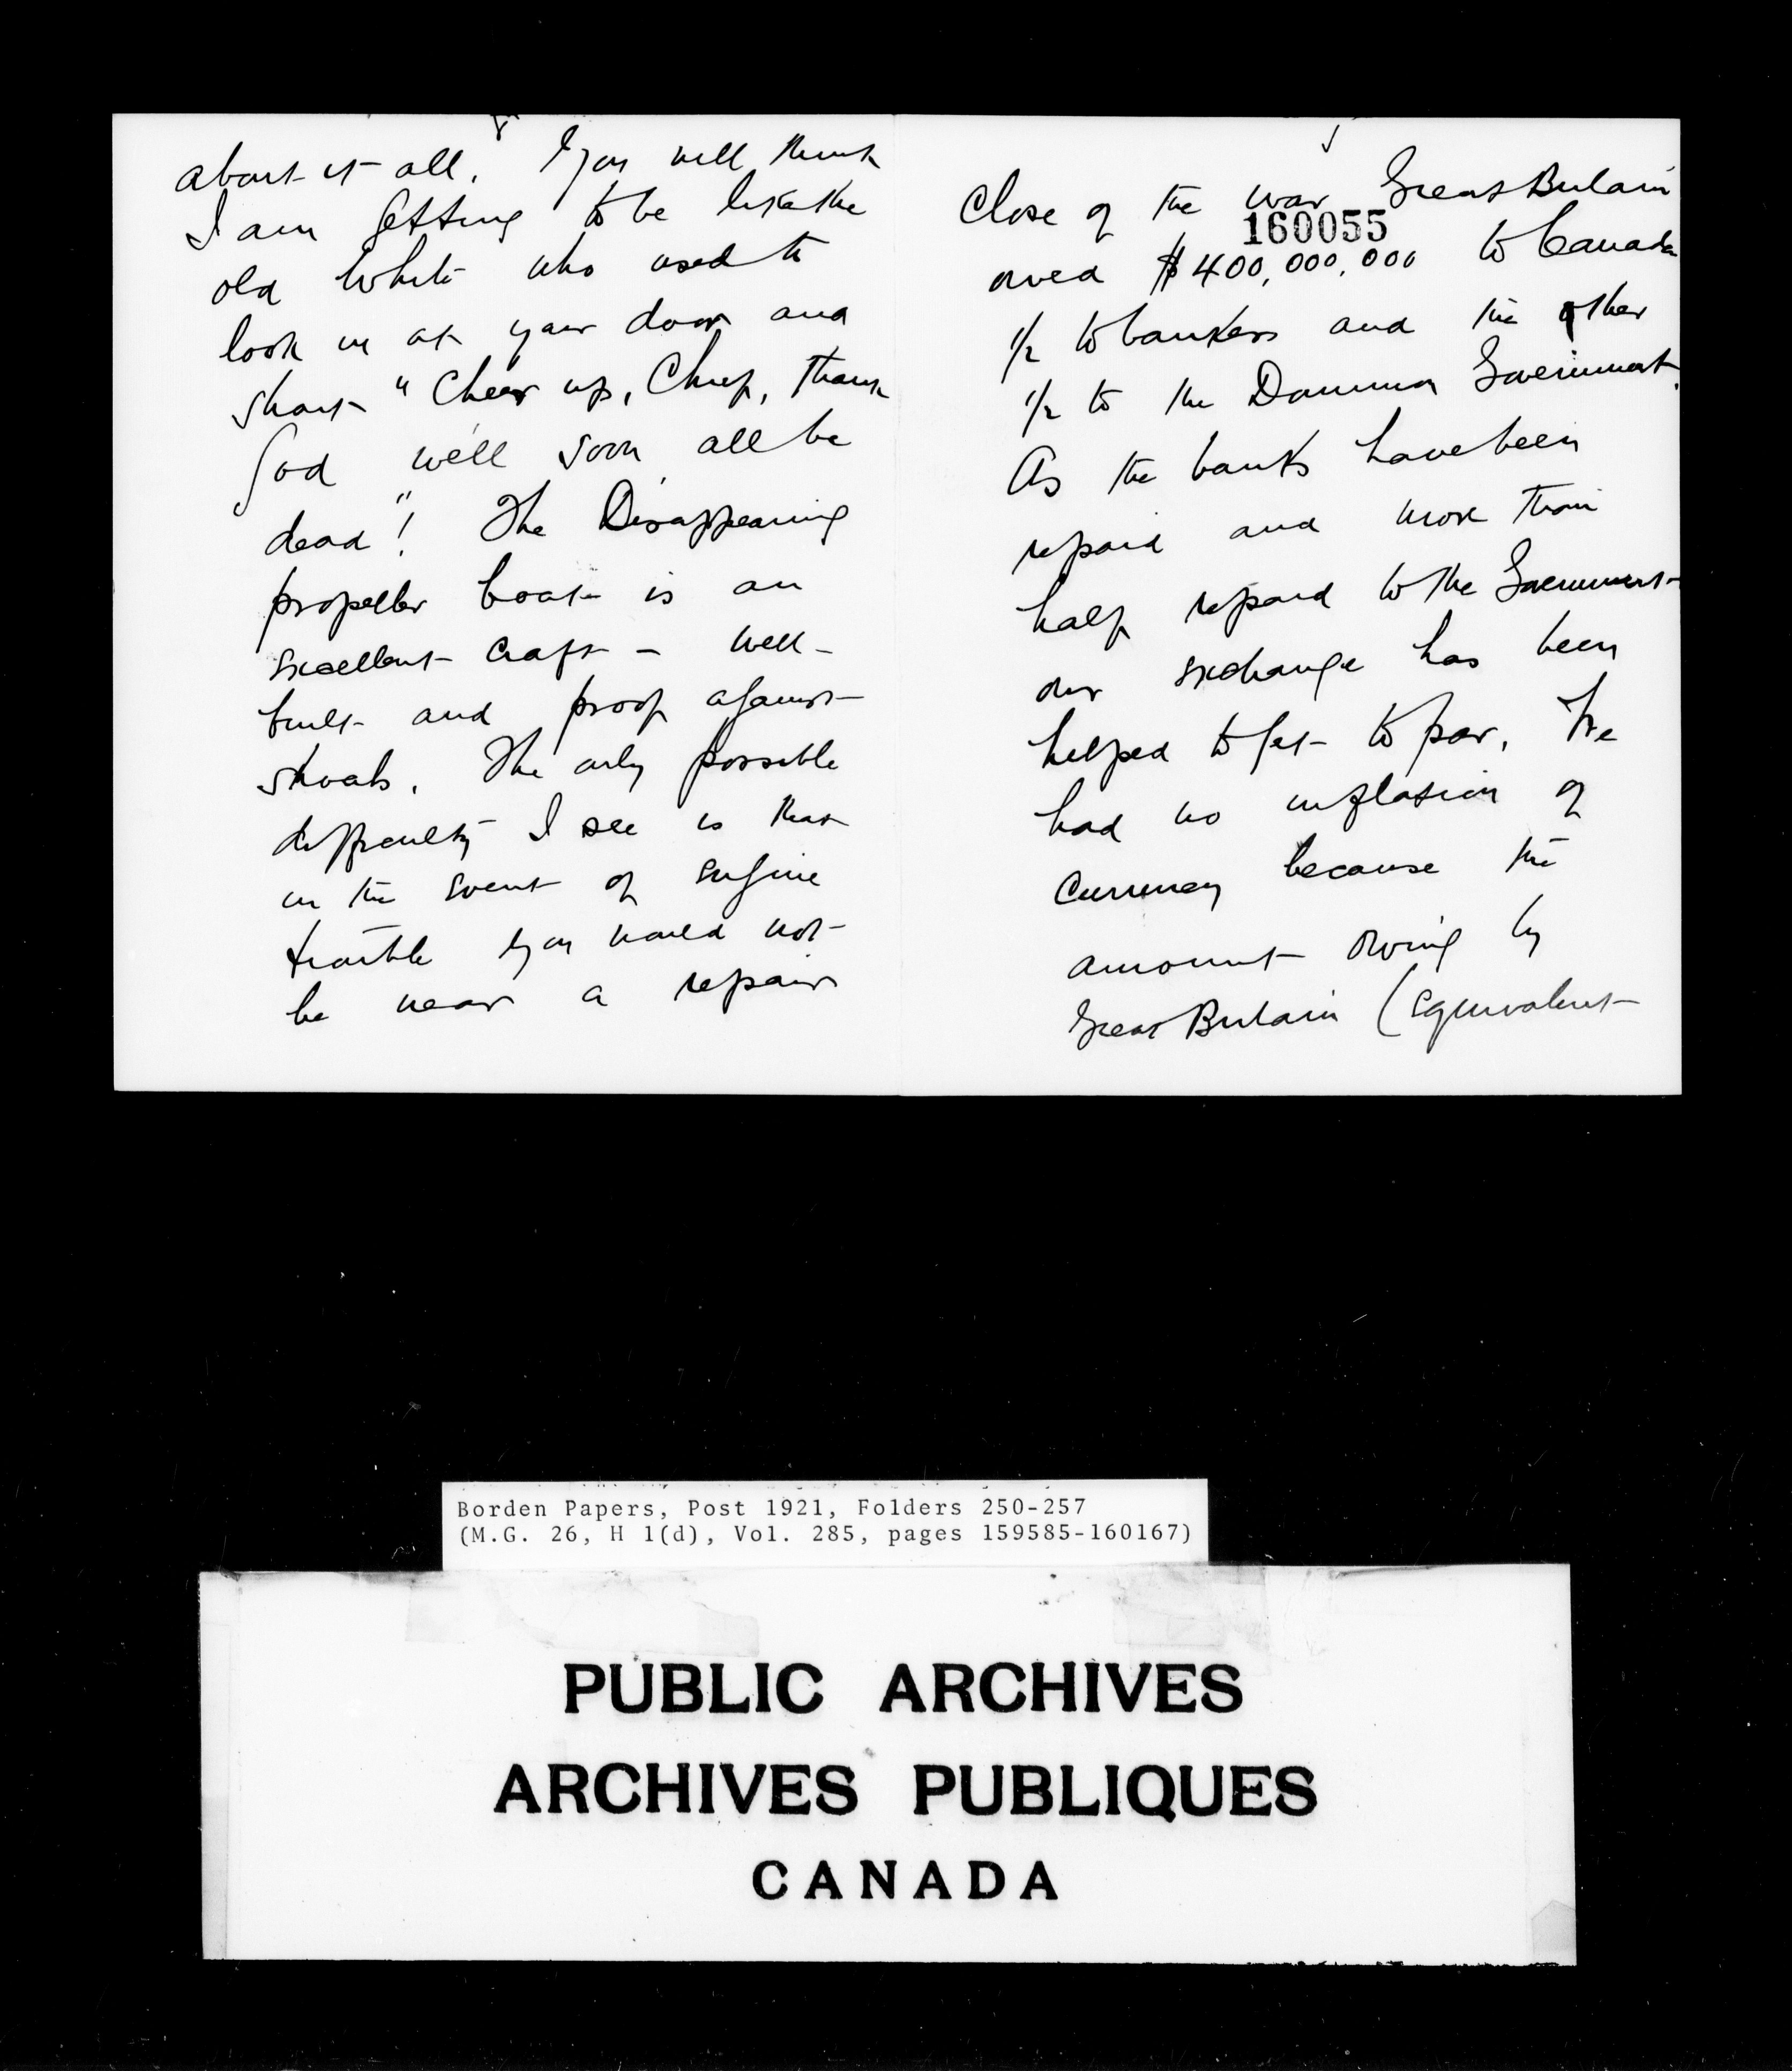 about it all. You will think
I am getting to be like the
old White who used to
look in at your door and
shout "Cheer up, Chief, thank
God we'll soon all be
dead"! The Disappearing
propeller boat is an
excellent craft – well-
built and proof against
shoals. The only possible
difficulty I see is that
in the event of engine
trouble you would not
be near a repair
Close of the war Great Britain
160055
owed $400,000,000 to Canada
1/2 to bankers and the other
1/2 to the Dominion Government.
As the banks have been
repaid and more than
half repaid to the Government
our exchange has been
helped to get to par. We
had no inflation of
currency because the
amount owing by
Great Britain (equivalent
Borden Papers, Post 1921, Folders 250-257
(M.G. 26, H 1(d), Vol. 285, pages 159585-160167)
PUBLIC ARCHIVES
ARCHIVES PUBLIQUES
CANADA